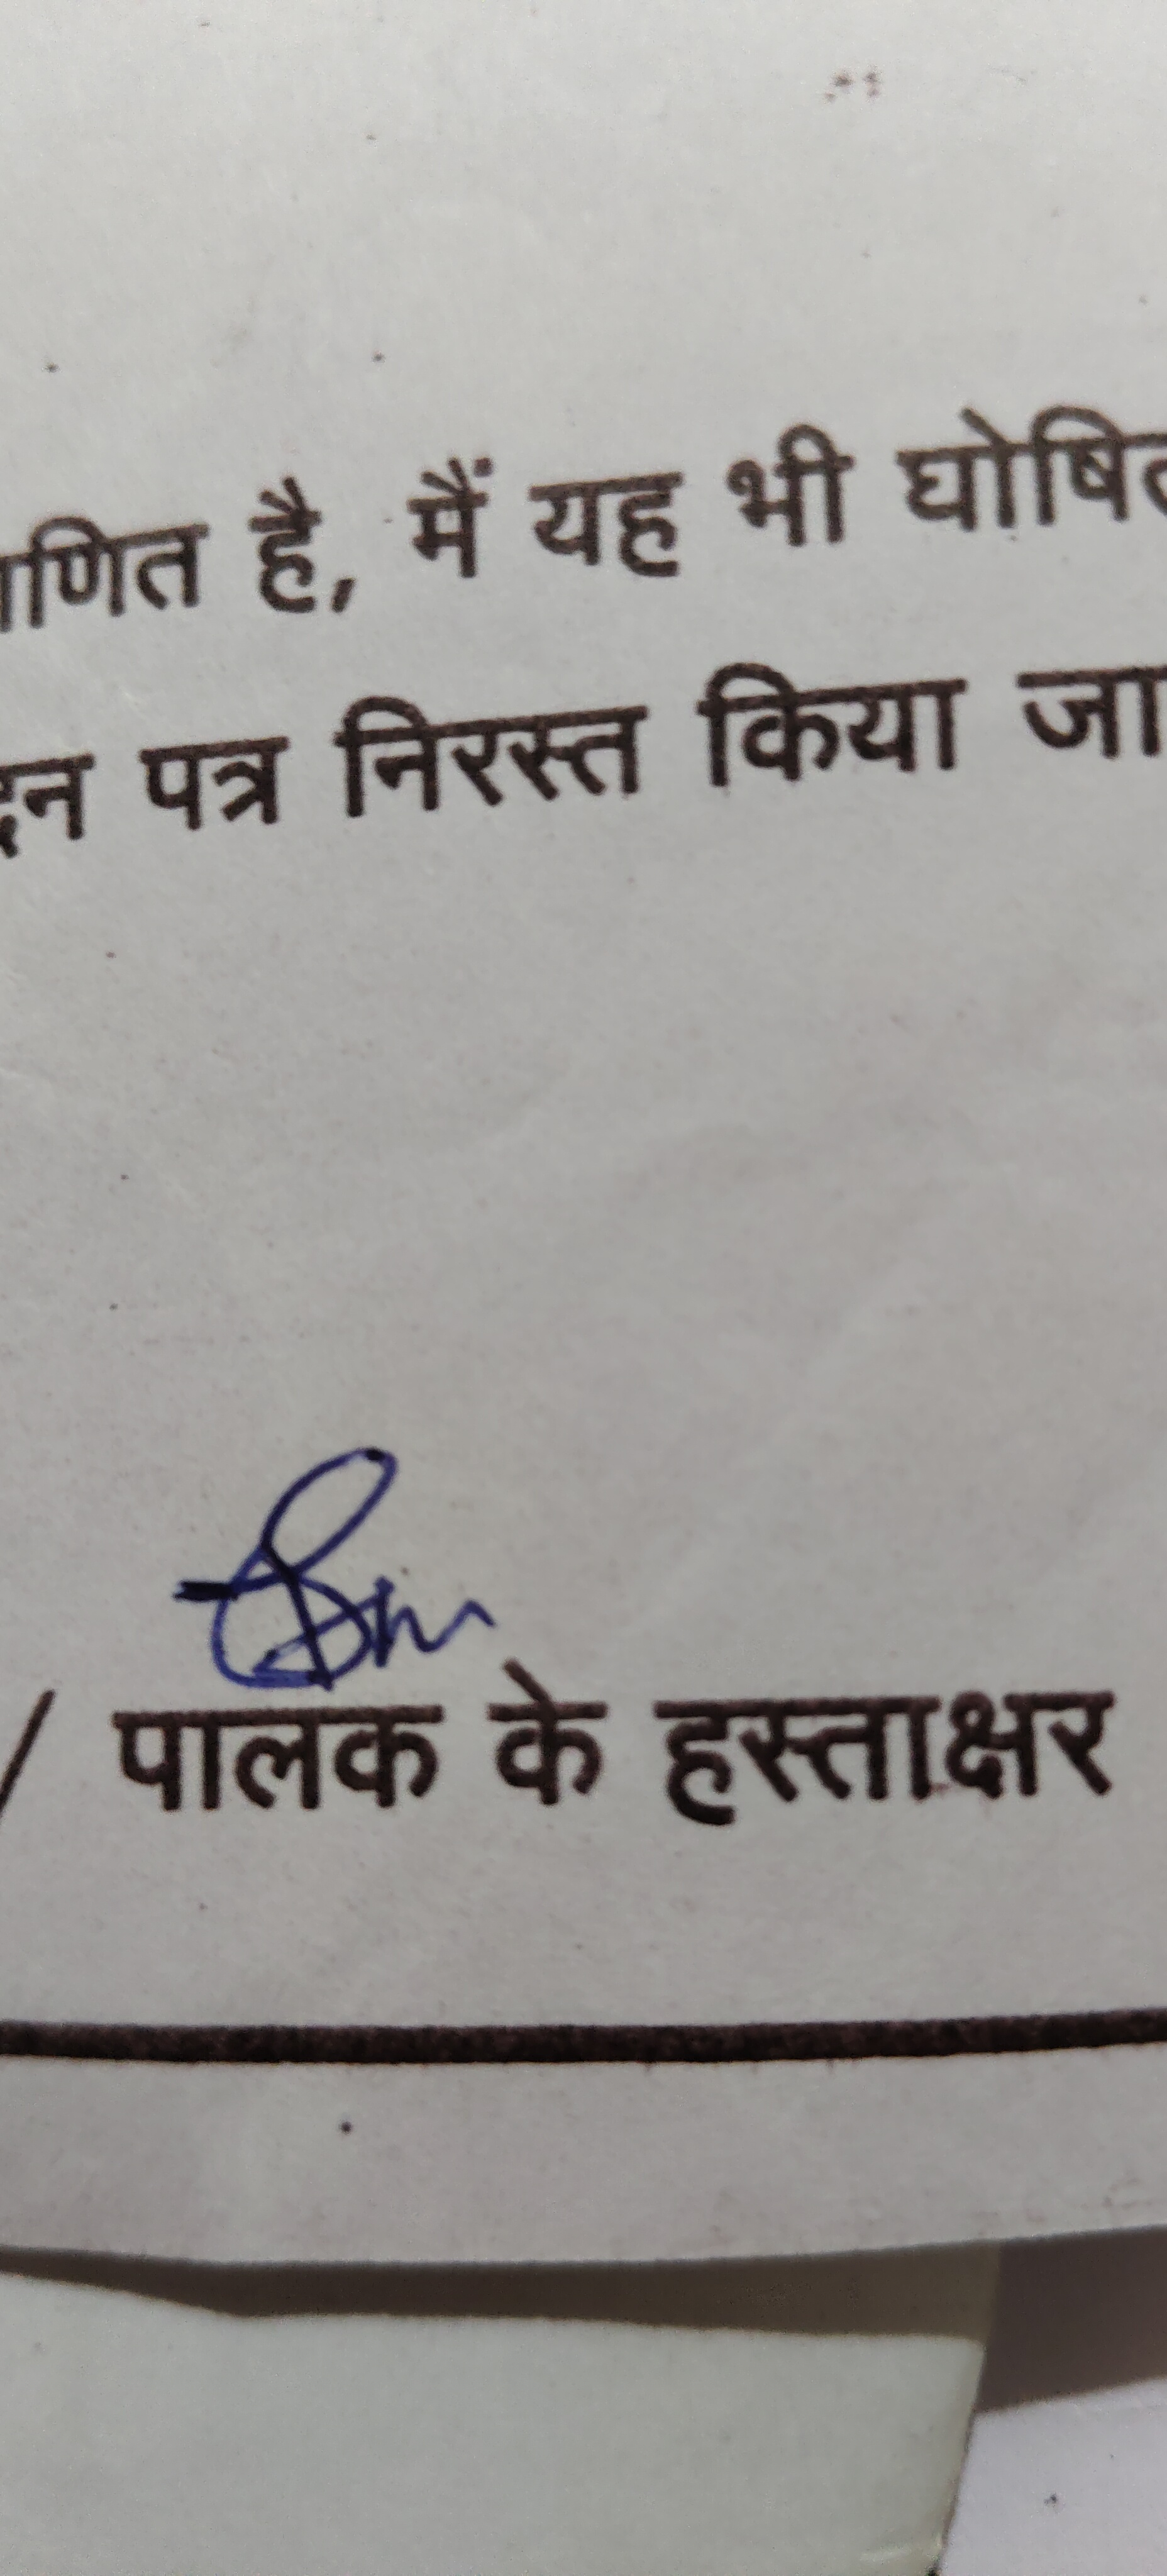 है, मैं यह भी
पत्र निरस्त किया
/ पालक के हस्ताक्षर